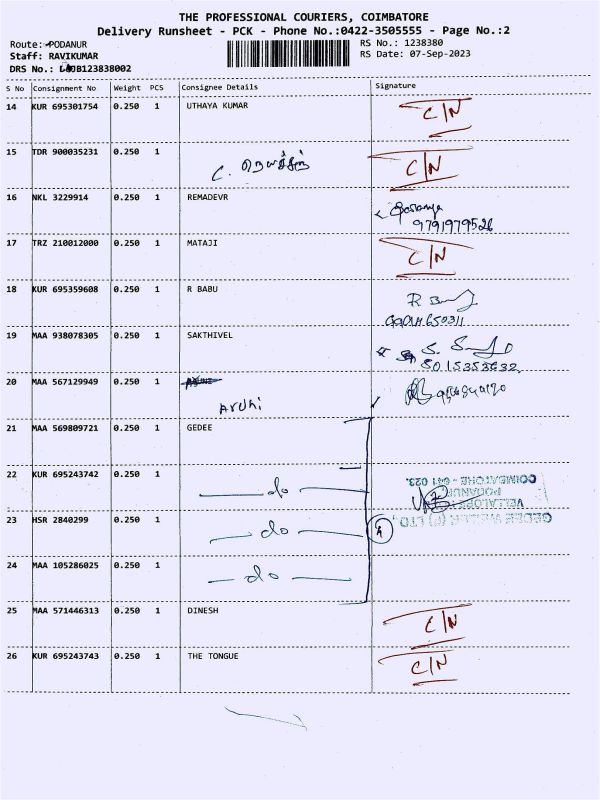 THE PROFESSIONAL COURIERS, COIMBATORE
Delivery Runsheet - PCK - Phone No.:0422-3505555 - Page No.:2
Route: PODANUR
RS No.: 1238380
Staff: RAVIKUMAR
RS Date: 07-Sep-2023
DRS No.: B123838002
S No Consignment No Weight PCS Consignee Details Signature
14 KUR 695301754 0.250 1 UTHAYA KUMAR C/N
15 TDR 900035231 0.250 1 C. C/N
16 NKL 3229914 0.250 1 REMADEVR
9791979526
17 TRZ 210012000 0.250 1 MATAJI C/N
18 KUR 695359608 0.250 1 R BABU
19 MAA 938078305 0.250 1 SAKTHIVEL
20 MAA 567129949 0.250 1
21 MAA 569809721 0.250 1 GEDEE
22 KUR 695243742 0.250 1 do
COIMBATORE - 641 023.
PODANUR
VELLALORE
23 HSR 2840299 0.250 1 do
GEDEE (P) LTD.,
24 MAA 105286025 0.250 1 do
25 MAA 571446313 0.250 1 DINESH C/N
26 KUR 695243743 0.250 1 THE TONGUE C/N